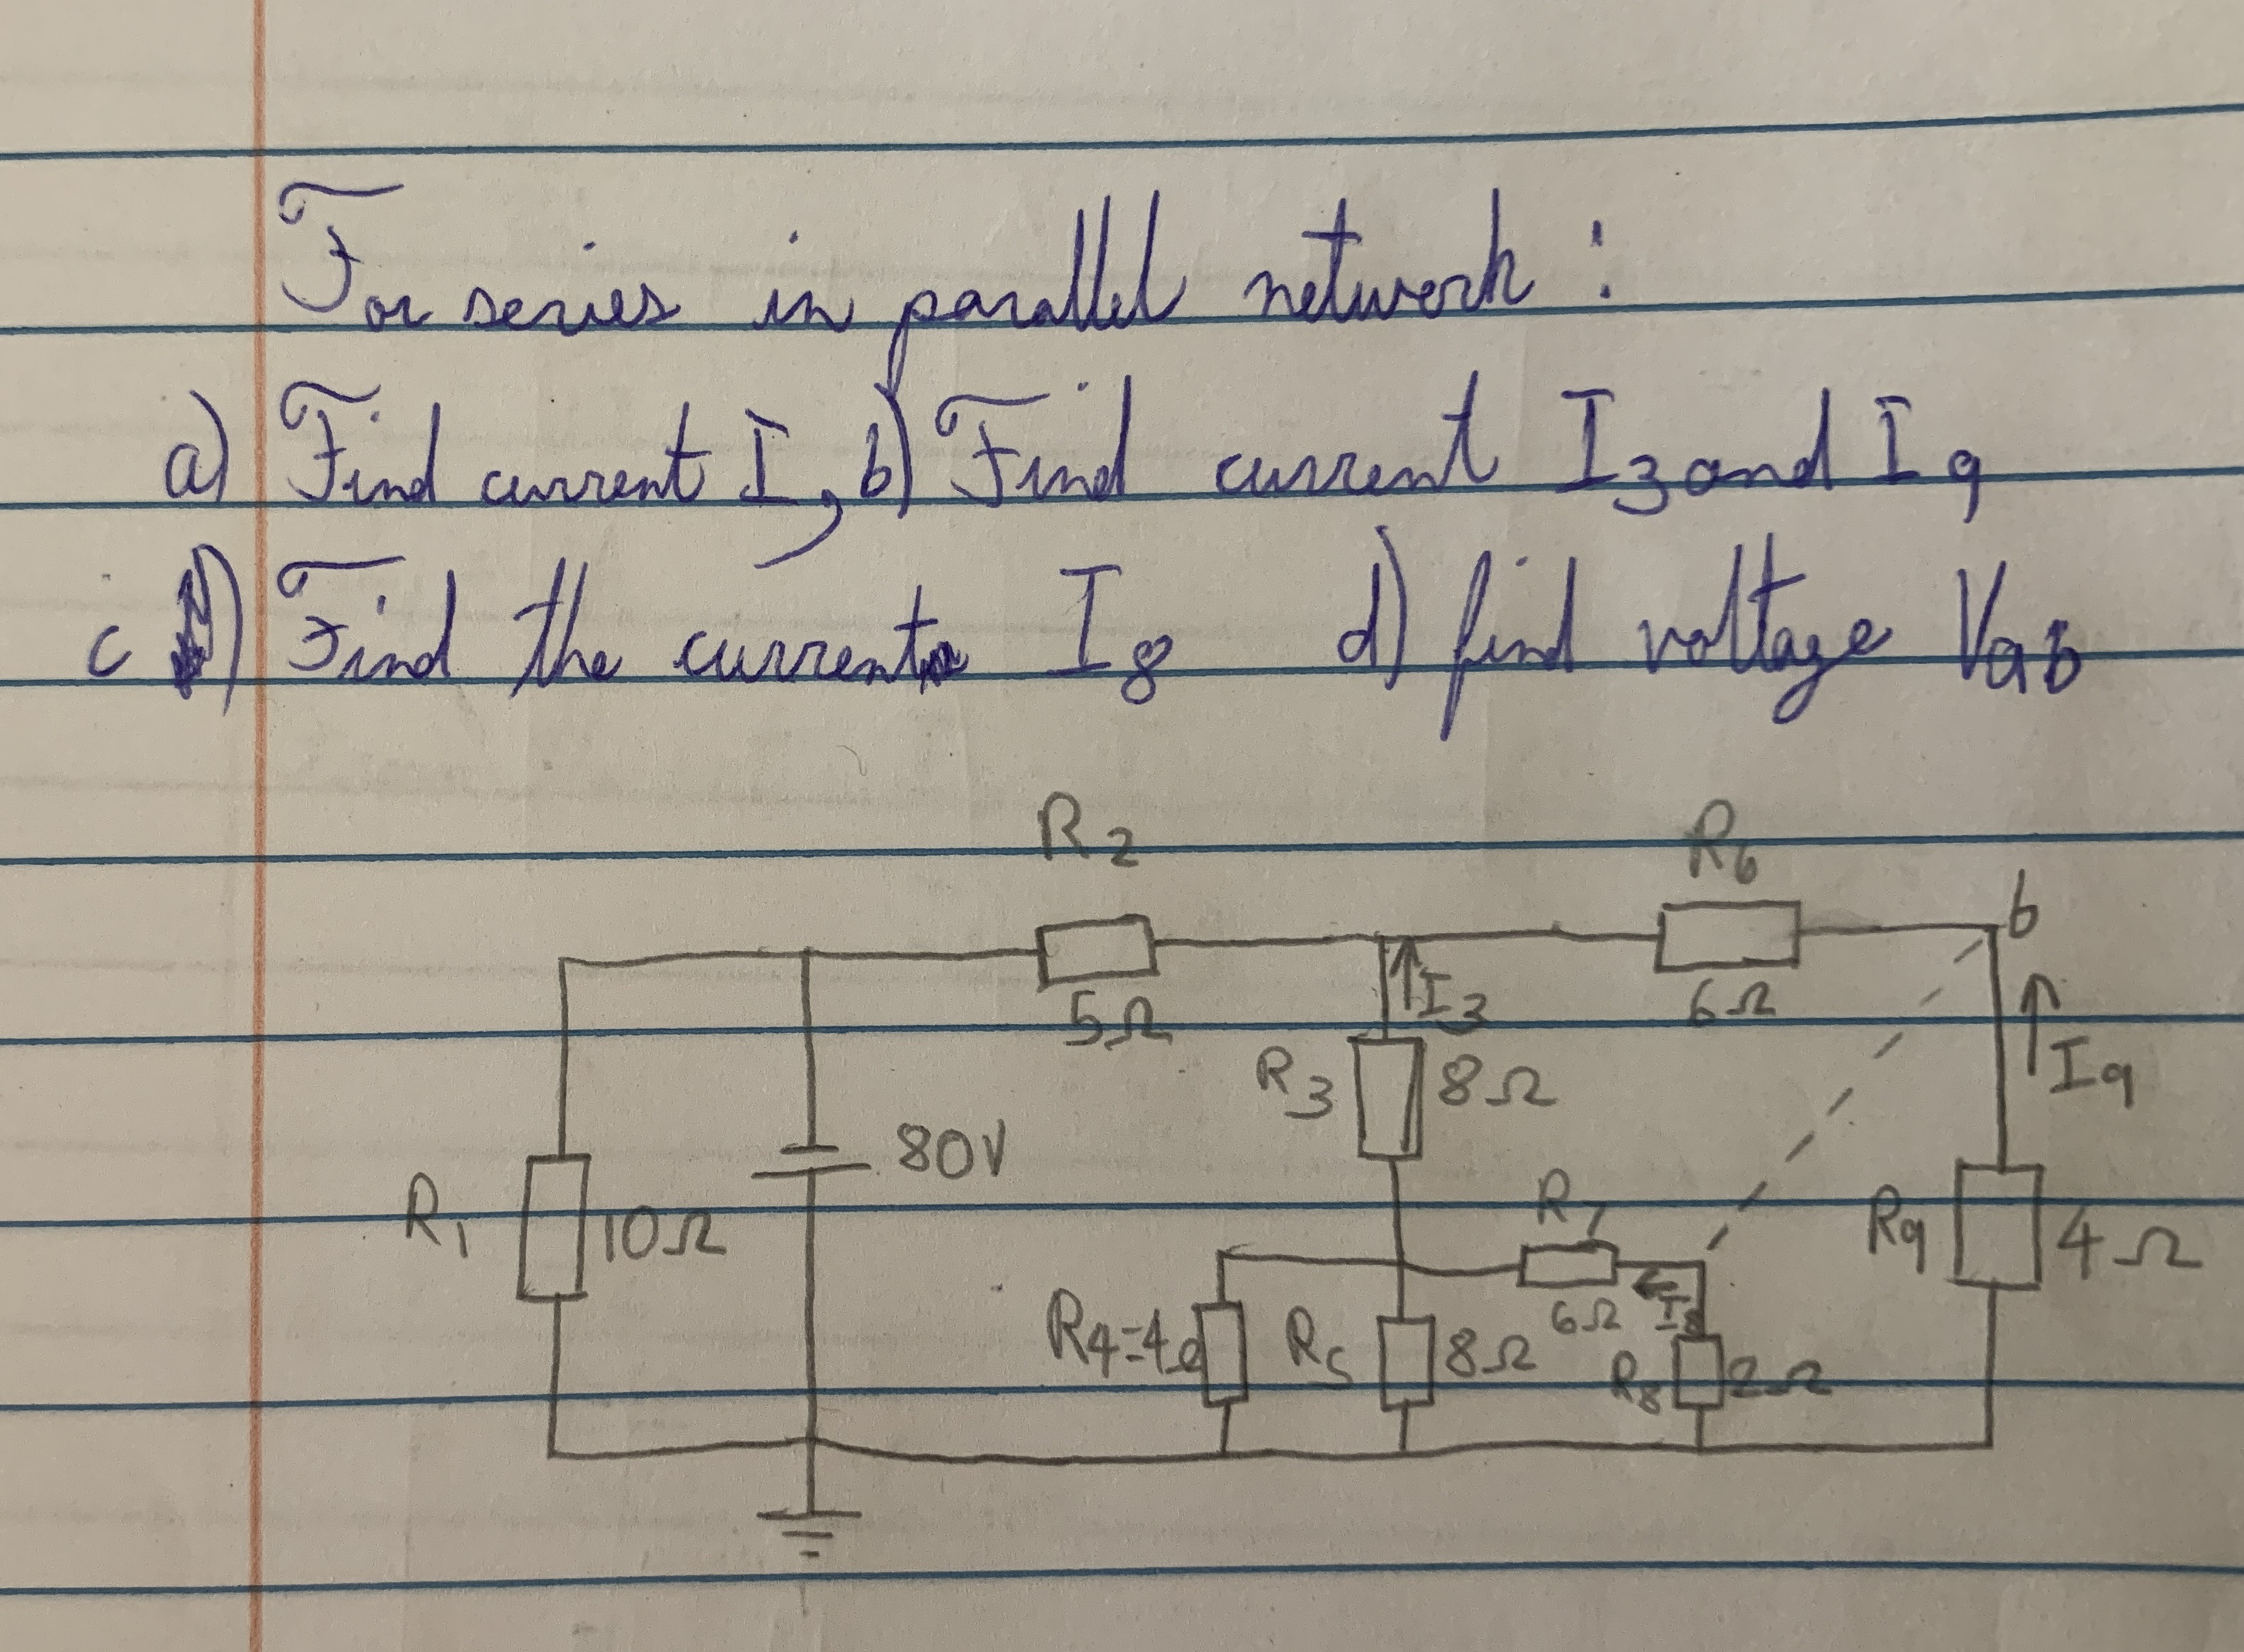 For series in parallel network :
a) Find current I, b) Find current I3 and I9
c) Find the current I8 d) find voltage Vab
R2 R6 b
5Ω I3 6Ω
R3 8Ω I9
80V
R1 10Ω R7 R9 4Ω
R4=4Ω R5 8Ω 6Ω I8
R8 2Ω